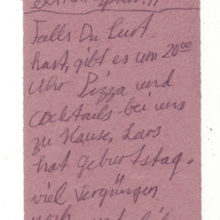 Falls Du Lust
hast, gibt es um 20⁰⁰
Uhr Pizza und
Cocktails bei uns
zu Hause, Lars
hat Geburtstag.
viel vergnügen
noch